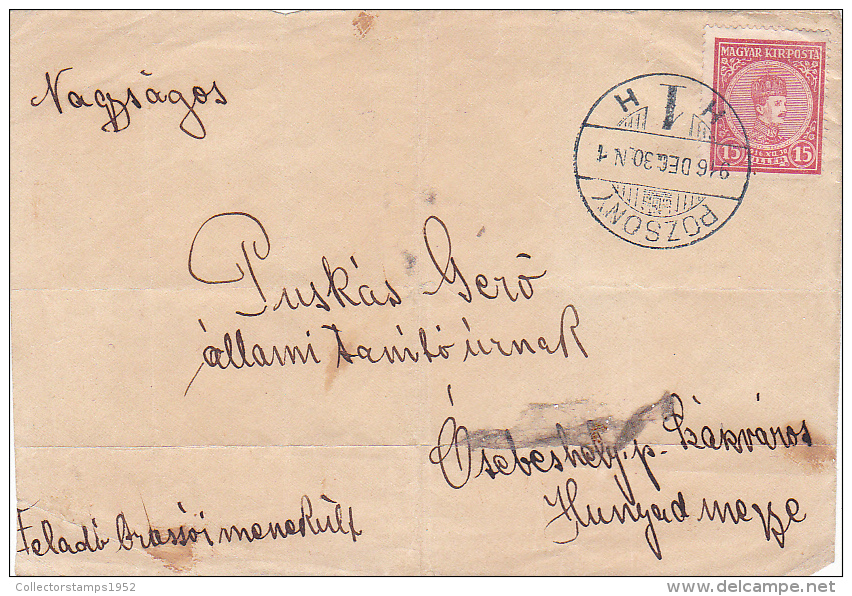 Nagyságos
MAGYAR KIR POSTA
15 FILLÉR 15
916 DEC. 30. N 1
POZSONY
Puskás Gerő
állami tanító úrnak
Ósebeshely. p. Szászváros
Hunyad megye
Feladó brassói menekült
Collectorstamps1952
delcampe.net